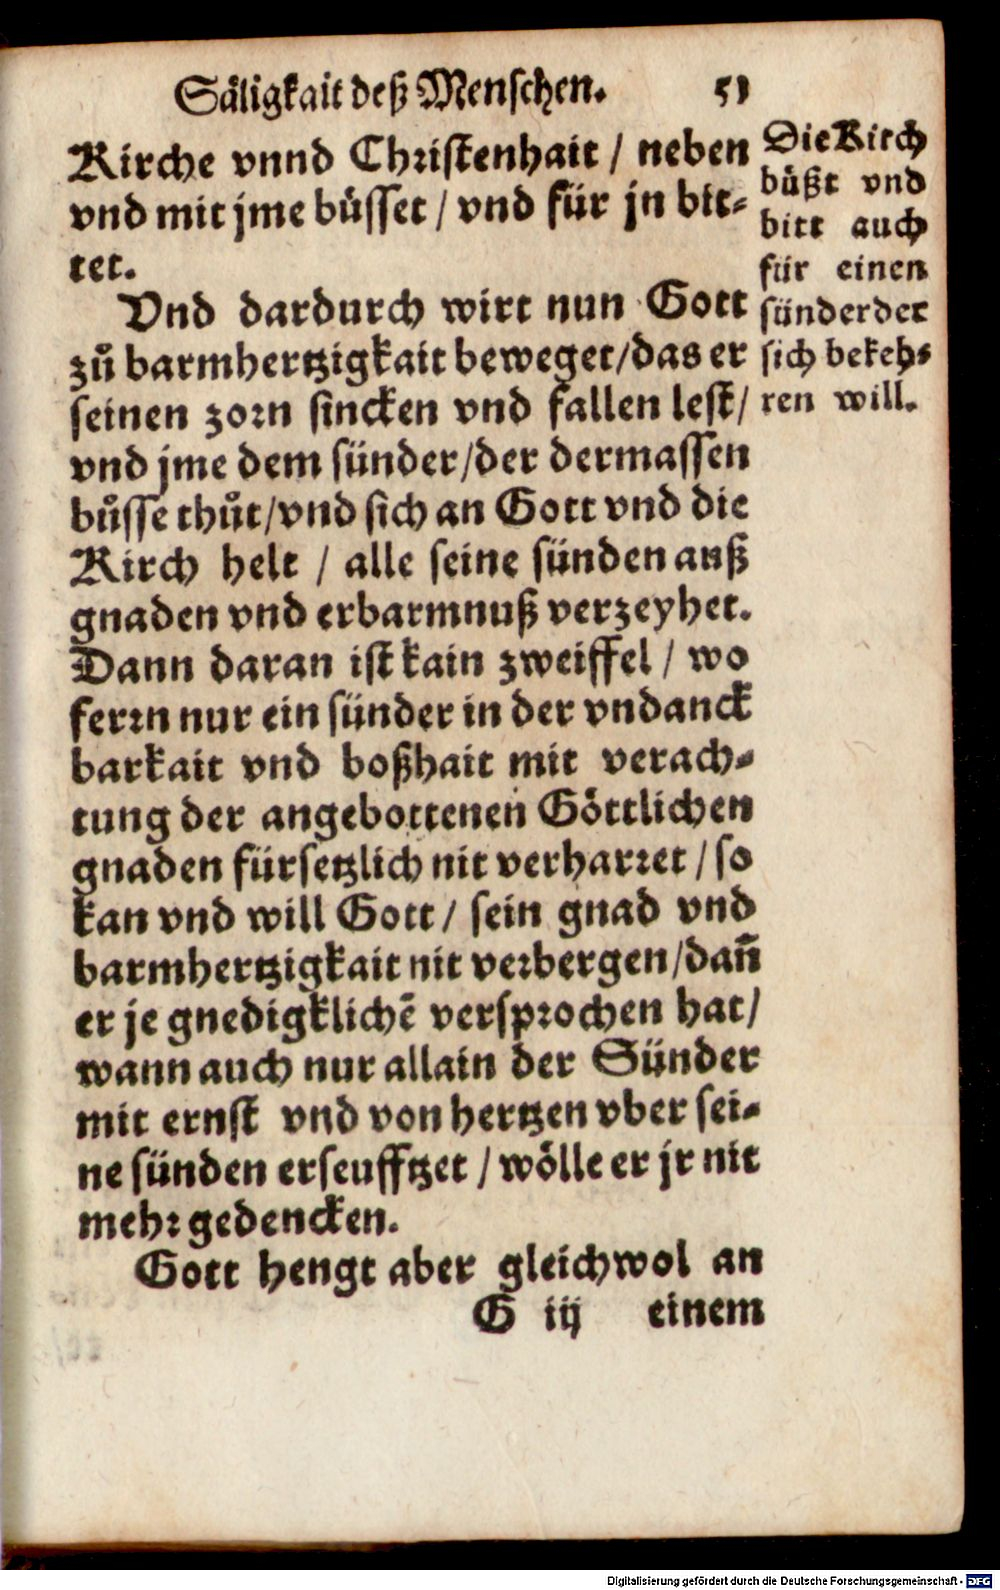 Säligkait deß Menschen. 51
Kirche vnnd Christenhait / neben
vnd mit jme büsset / vnd für jn bit-
tet.
Vnd dardurch wirt nun Gott
zů barmhertzigkait beweget/das er
seinen zorn sincken vnd fallen lest/
vnd jme dem sünder/der dermassen
bůsse thůt/vnd sich an Gott vnd die
Kirch helt / alle seine sünden auß
gnaden vnd erbarmnuß verzeyhet.
Dann daran ist kain zweiffel / wo
ferrn nur ein sünder in der vndanck
barkait vnd boßhait mit verach-
tung der angebottenen Göttlichen
gnaden fürsetzlich nit verharret / so
kan vnd will Gott / sein gnad vnd
barmhertzigkait nit verbergen/dañ
er je gnedigklichē versprochen hat/
wann auch nur allain der Sünder
mit ernst vnd von hertzen vber sei-
ne sünden erseufftzet / wölle er jr nit
mehr gedencken.
Gott hengt aber gleichwol an
G iij einem
Die Kirch
büßt vnd
bitt auch
für einen
sünder der
sich bekeh-
ren will.
Digitalisierung gefördert durch die Deutsche Forschungsgemeinschaft - DFG